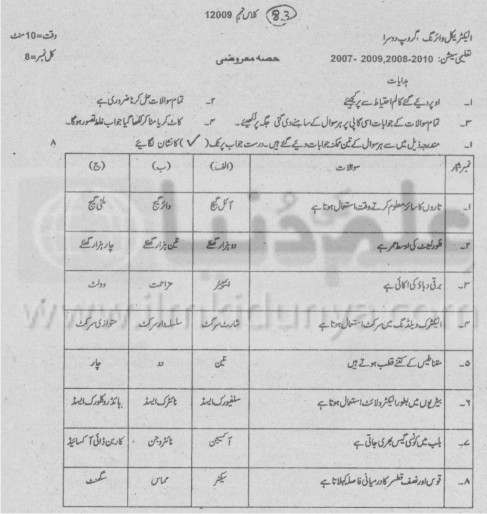 83
کلاس نہم 12009
الیکٹریکل وائرنگ، گروپ دوسرا
وقت=10 منٹ
تعلیمی سیشن: 2008-2010,2009-2007
حصہ معروضی
کل نمبر=8
ہدایات
۱۔ اوپر دیے گئے کالم احتیاط سے پر کیجئے
۲۔ تمام سوالات حل کرنا ضروری ہے
۳۔ تمام سوالات کے جوابات اسی کاپی پر ہر سوال کے سامنے دی گئی جگہ پر لکھیئے۔
۴۔ کاٹ کر یا مٹا کر لکھا گیا جواب غلط تصور ہوگا۔
۱۔ مندرجہ ذیل میں سے ہر سوال کے تین ممکنہ جوابات دیے گئے ہیں۔ درست جواب پر ٹک (✓) کا نشان لگائیے ۸
نمبر شمار سوالات (الف) (ب) (ج)
۱۔ تاروں کا سائز معلوم کرتے وقت استعمال ہوتا ہے آئل گیج وائر گیج ملٹی گیج
۲۔ کی اوسط عمر ہے دو ہزار گھنٹے تین ہزار گھنٹے چار ہزار گھنٹے
۳۔ برقی دباؤ کی اکائی ہے ایمپیئر مزاحمت وولٹ
۴۔ الیکٹرک ویلڈنگ میں سرکٹ استعمال ہوتا ہے شارٹ سرکٹ سلسلہ وار سرکٹ متوازی سرکٹ
۵۔ مقناطیس کے کتنے قطب ہوتے ہیں تین دو چار
۶۔ بیٹریوں میں بطور الیکٹرولائٹ استعمال ہوتا ہے سلفیورک ایسڈ نائٹرک ایسڈ ہائیڈروکلورک ایسڈ
۷۔ بلب میں کونسی گیس بھری جاتی ہے آکسیجن نائٹروجن کاربن ڈائی آکسائیڈ
۸۔ قوس اور نصف قطر کا درمیانی فاصلہ کہلاتا ہے سیکٹر مماس سگمنٹ
علم کی دنیا
www.ilmkidunya.com